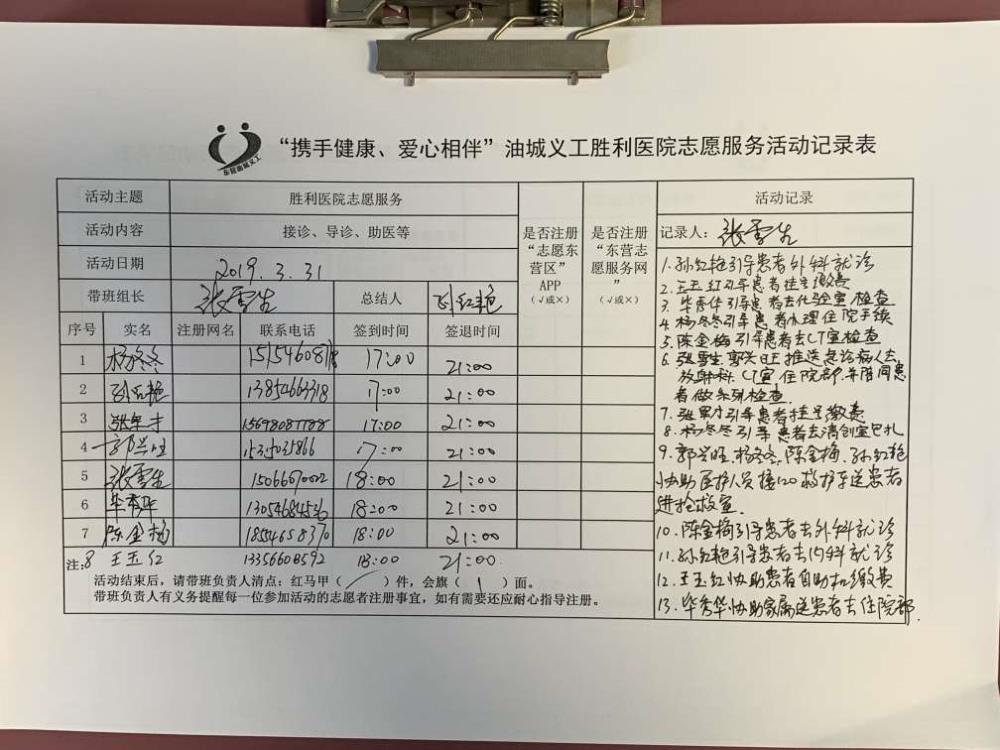 “携手健康、爱心相伴”油城义工胜利医院志愿服务活动记录表
东营油城义工
活动主题 胜利医院志愿服务
活动内容 接诊、导诊、助医等
活动日期 2019.3.31
带班组长 张雪生 总结人 孙红艳
是否注册“志愿东营区”APP（√或×）
是否注册“东营志愿服务网”（√或×）
序号 实名 注册网名 联系电话 签到时间 签退时间
1 杨冬冬 17:00 21:00
2 孙红艳 13854663318 17:00 21:00
3 张军才 17:00 21:00
4 郭兴旺 17:00 21:00
5 张雪生 18:00 21:00
6 毕秀华 18:00 21:00
7 陈金梅 18554658370 18:00 21:00
8 王玉红 13356608592 18:00 21:00
注：
活动结束后，请带班负责人清点：红马甲（ ）件，会旗（ 1 ）面。
带班负责人有义务提醒每一位参加活动的志愿者注册事宜，如有需要还应耐心指导注册。
活动记录
记录人：张雪生
1.孙红艳引导患者外科就诊
2.王玉红引导患者挂号缴费
3.毕秀华引导患者去化验室检查
4.杨冬冬引导患者办理住院手续
5.陈金梅引导患者去CT室检查
6.张雪生郭兴旺推送急诊病人去
放射科.CT室.住院部.并陪同患
者做系列检查.
7.张军才引导患者挂号缴费
8.杨冬冬引导患者去清创室包扎
9.郭兴旺.杨冬冬.陈金梅.孙红艳
协助医护人员接120救护车送患者
进抢救室.
10.陈金梅引导患者去外科就诊
11.孙红艳引导患者去内科就诊
12.王玉红协助患者自助机缴费
13.毕秀华协助家属送患者去住院部.